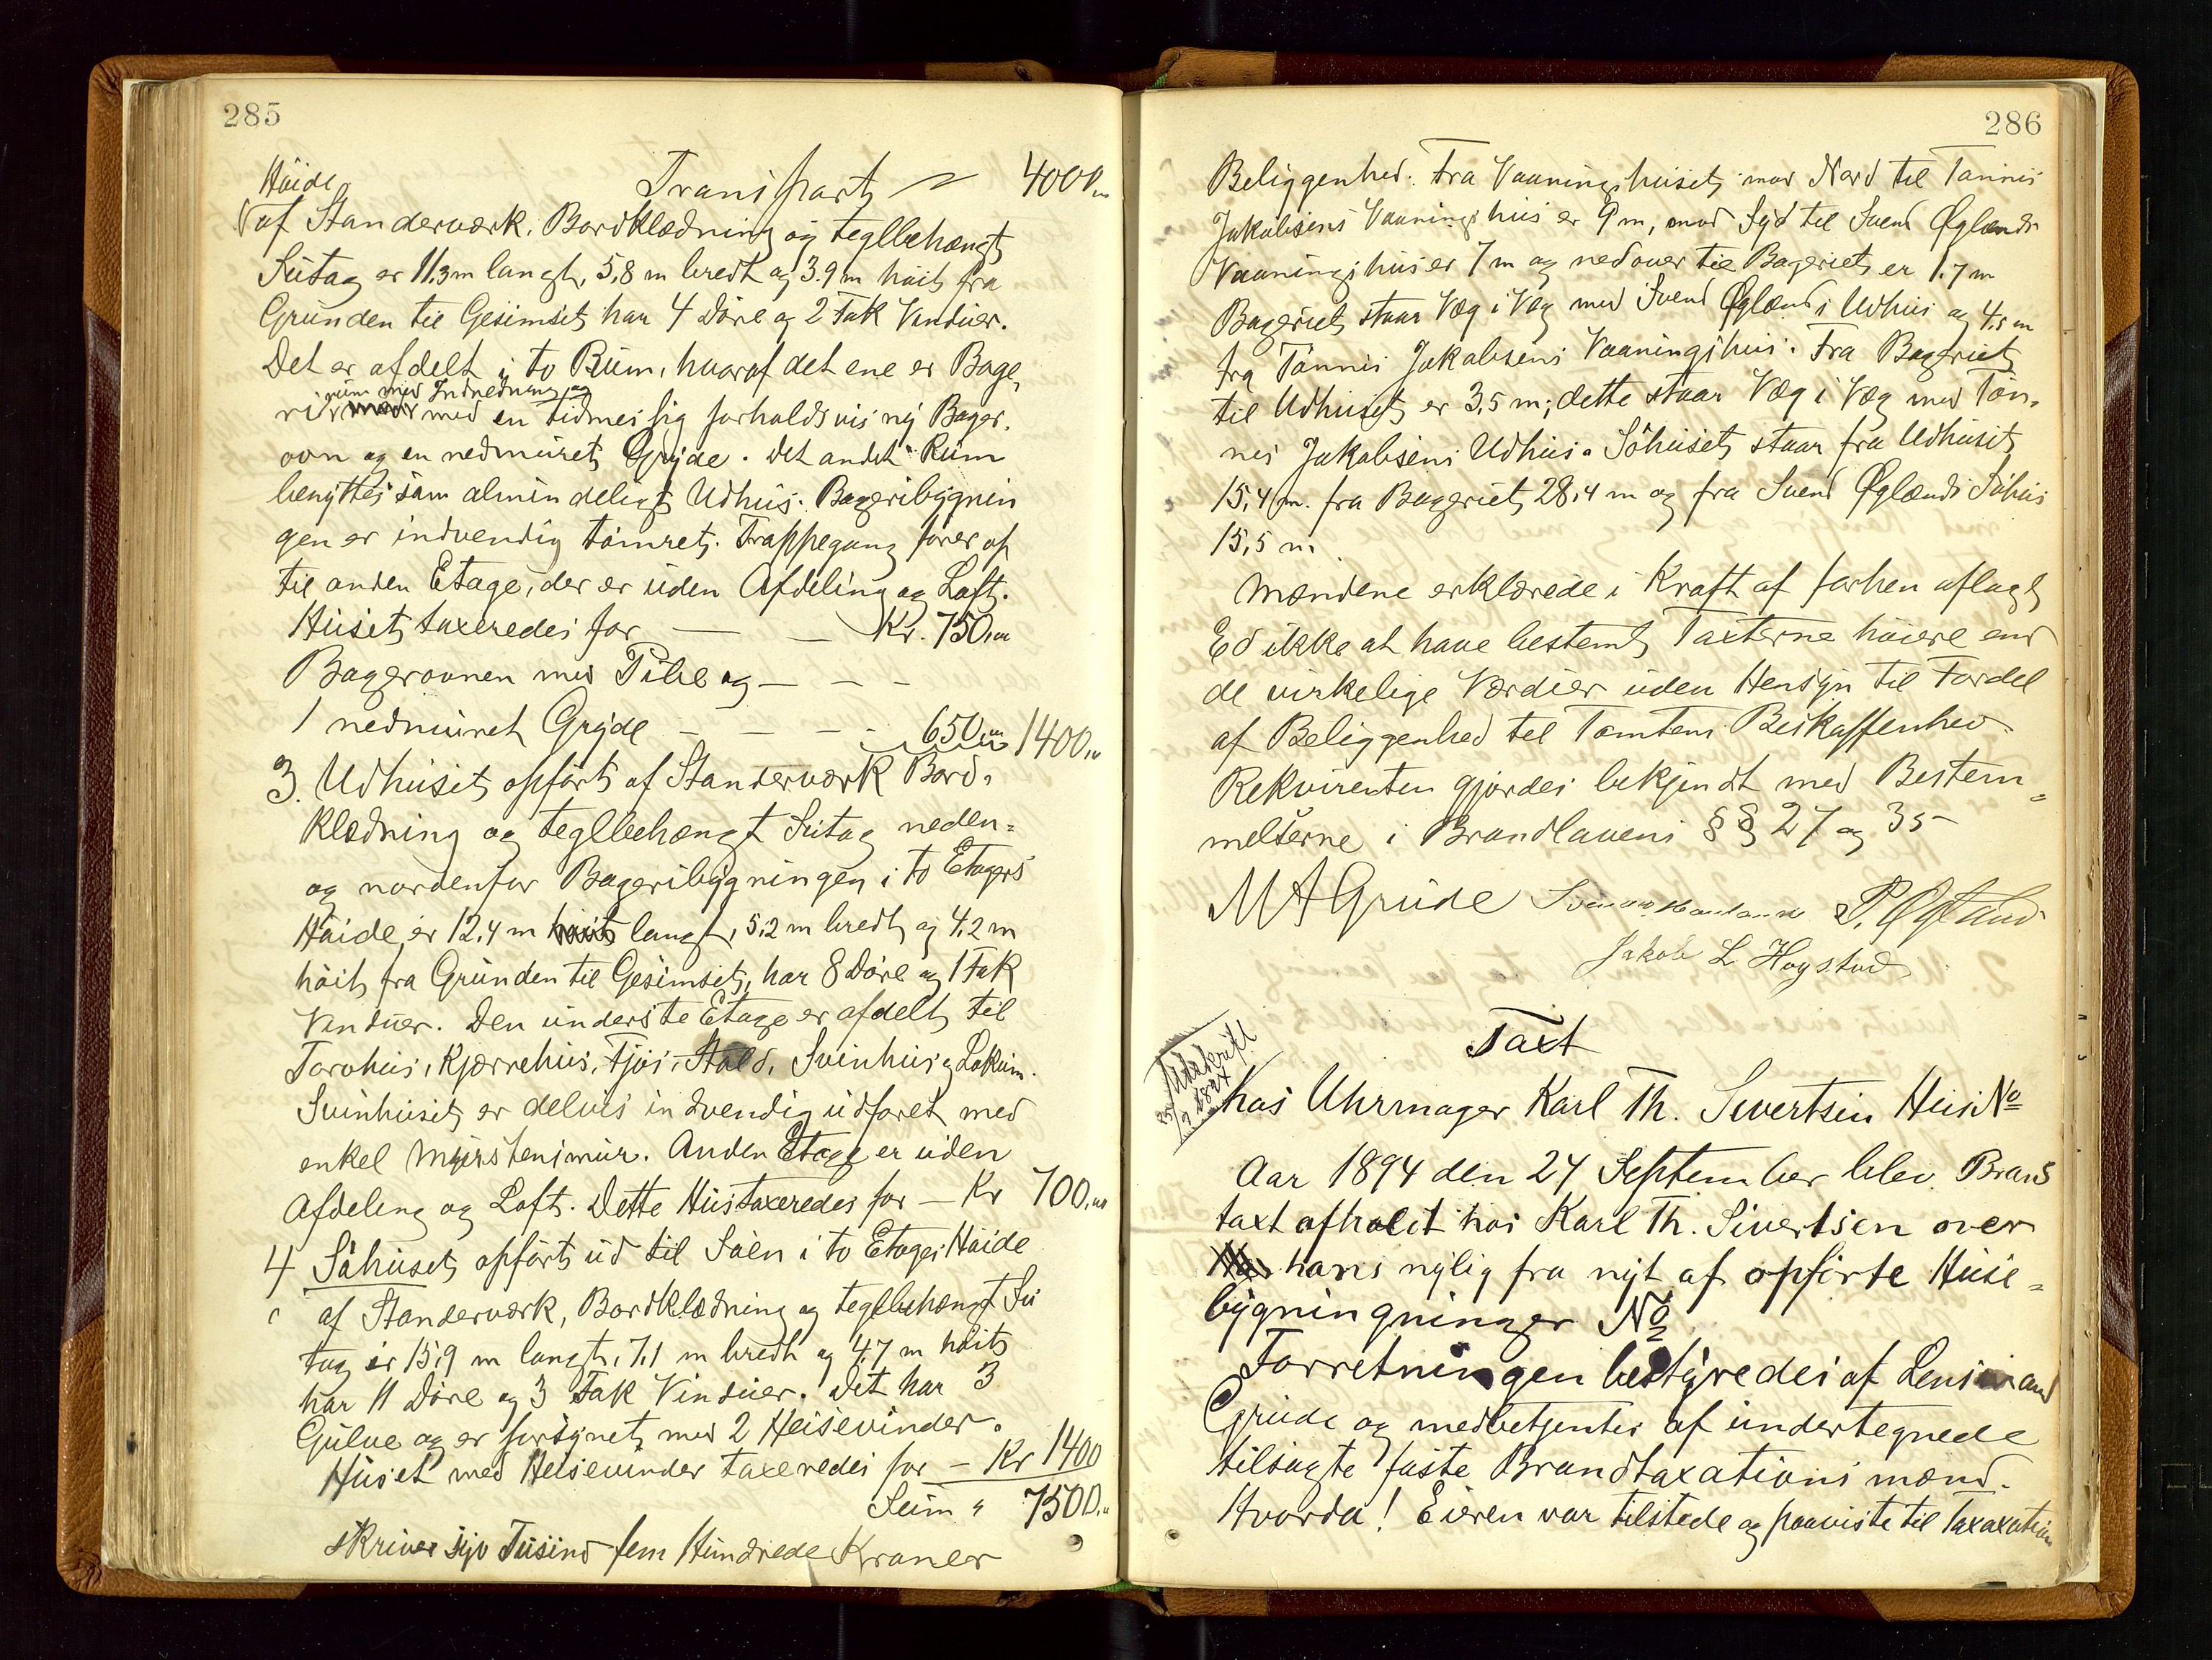 285
Høide
Transport 4000.00
af Standerværk, Bordklædning og teglbehængt
Sutag er 11.3 m langt, 5,8 m bredt og 3.9 m høit fra
Grunden til Gesimset, har 4 Døre og 2 Fak Vinduer.
Det er afdelt i to Rum, hvoraf det ene er Bage,
rum med Indredning og
ri med en tidmessig forholdsvis ny Bager,
ovn og en nedmuret Gryde. Det andet Rum
benyttes som almindeligt Udhus. Bageribygnin
gen er indvendig tømret. Trappegang fører op
til anden Etage, der er uden Afdeling og Loft.
Huset taxeredes for — — Kr. 750.00
Bagerovnen med Pibe og — — –
1 nedmuret Gryde – — — – 650.00 1400.00
3. Udhuset, opført af Standerværk Bord,
klædning og teglbehængt Sutag neden=
og nordenfor Bageribygningen i to Etages
Høide, er 12,4 m høit langt, 5,2 m bredt og 4,2 m
høit fra Grunden til Gesimset, har 8 Døre og 1 Fak
Vinduer. Den underste Etage er afdelt til
Torvhus, Kjærrehus, Fjøs, Stald, Svinhus og Lokum.
Svinhuset er delvis indvendig udforet med
enkel Murstensmur. Anden Etage er uden
Afdeling og Loft. Dette Hus taxeredes for — Kr 700.00
4 Søhuset, opført ud til Søen i to Etages Høide
af Standerværk, Bordklædning og teglbehængt Su
tag er 15,9 m langt, 7,1 m bredt og 4,7 m høit
har 11 Døre og 3 Fak Vinduer. Det har 3
Gulve og er forsynet med 2 Heisevinder.
Huset med Heisevinder taxeredes for – Kr 1400
Sum " 7500.00
skriver syv Tusind fem Hundrede Kroner
286
Beliggenhed. Fra Vaaningshuset mod Nord til Tønnes
Jakobsens Vaaningshus er 9 m, mod Syd til Svend Øglænds
Vaaningshus er 7 m og nedover til Bageriet er 1.7 m
Bageriet staar Væg i Væg med Svend Øglænds Udhus og 4,5 m
fra Tønnes Jakobsens Vaaningshus. Fra Bageriet
til Udhuset er 3,5 m; dette staar Væg i Væg med Tøn,
nes Jakobsens Udhus. Søhuset staar fra Udhuset
15,4 m. fra Bageriet 28,4 m og fra Svend Øglænds Søhus
15,5 m.
Mændene erklærede i Kraft af forhen aflagt
Ed ikke at have bestemt Taxterne høiere end
de virkelige Værdier uden Hensyn til Fordel
af Beliggenhed til Tomtens Beskaffenhed.
Rekvirenten gjordes bekjendt med Bestem=
melserne i Brandlovens §§ 27 og 35
MAGrude P. Øgland
Jakob L Hogstad
Udskrift
Taxt
hos Uhrmager Karl Th. Sivertsen Hus No
Aar 1894 den 24 September blev Brand
taxt afholdt hos Karl Th. Sivertsen over
hans nylig fra nyt af opførte Huse=
bygningninger No
Forretningen bestyredes af Lensmand
Grude og medbetjentes af undertegnede
tilsagte faste Brandtaxationsmænd.
Hvorda! Eieren var tilstede og paaviste til Taxaxation